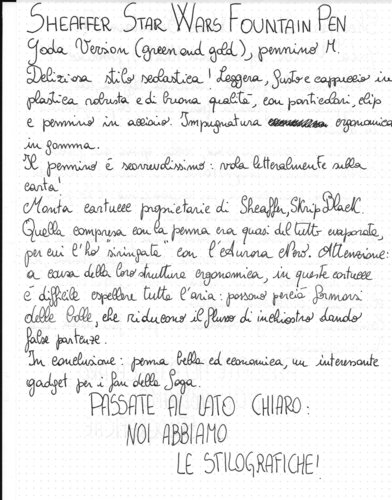 SHEAFFER STAR WARS FOUNTAIN PEN
Yoda Version (green and gold), pennino M.
Deliziosa stilo scolastica! Leggera, fusto e cappuccio in
plastica robusta e di buona qualità, con particolari, clip
e pennino in acciaio. Impugnatura ergonomica
in gomma.
Il pennino é scorrevolissimo: vola letteralmente sulla
carta!
Monta cartucce proprietarie di Sheaffer, Skrip Black.
Quella compresa con la penna era quasi del tutto evaporata,
per cui l'ho "siringata" con l'Aurora Nero. Attenzione:
a causa della loro struttura ergonomica, in queste cartucce
é difficile espellere tutta l'aria: possono perciò formarsi
delle bolle, che riducono il flusso di inchiostro dando
false partenze.
In conclusione: penna bella ed economica, un interessante
gadget per i fan della Saga.
PASSATE AL LATO CHIARO:
NOI ABBIAMO
LE STILOGRAFICHE!